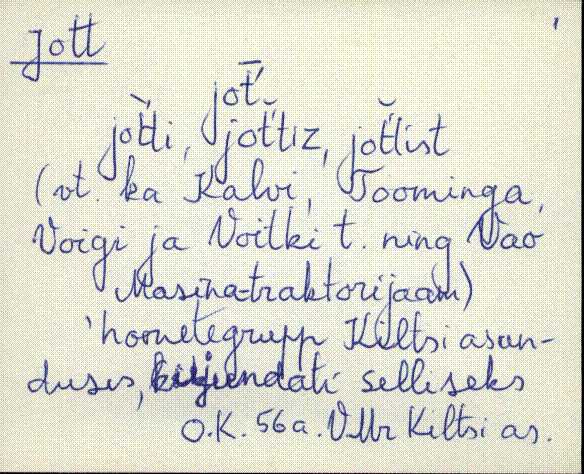 Jott
jot̄'
jot̀'t'i, jot̆'t'iz, jot̆'t'ist
(vt. ka Kalvi, Toominga,
Voigi ja Voitki t. ning Vao
Masina-traktorijaam)
'hoonetegrupp Kiltsi asun-
duses, kujundati selliseks
O.K. 56a. VMr Kiltsi as.